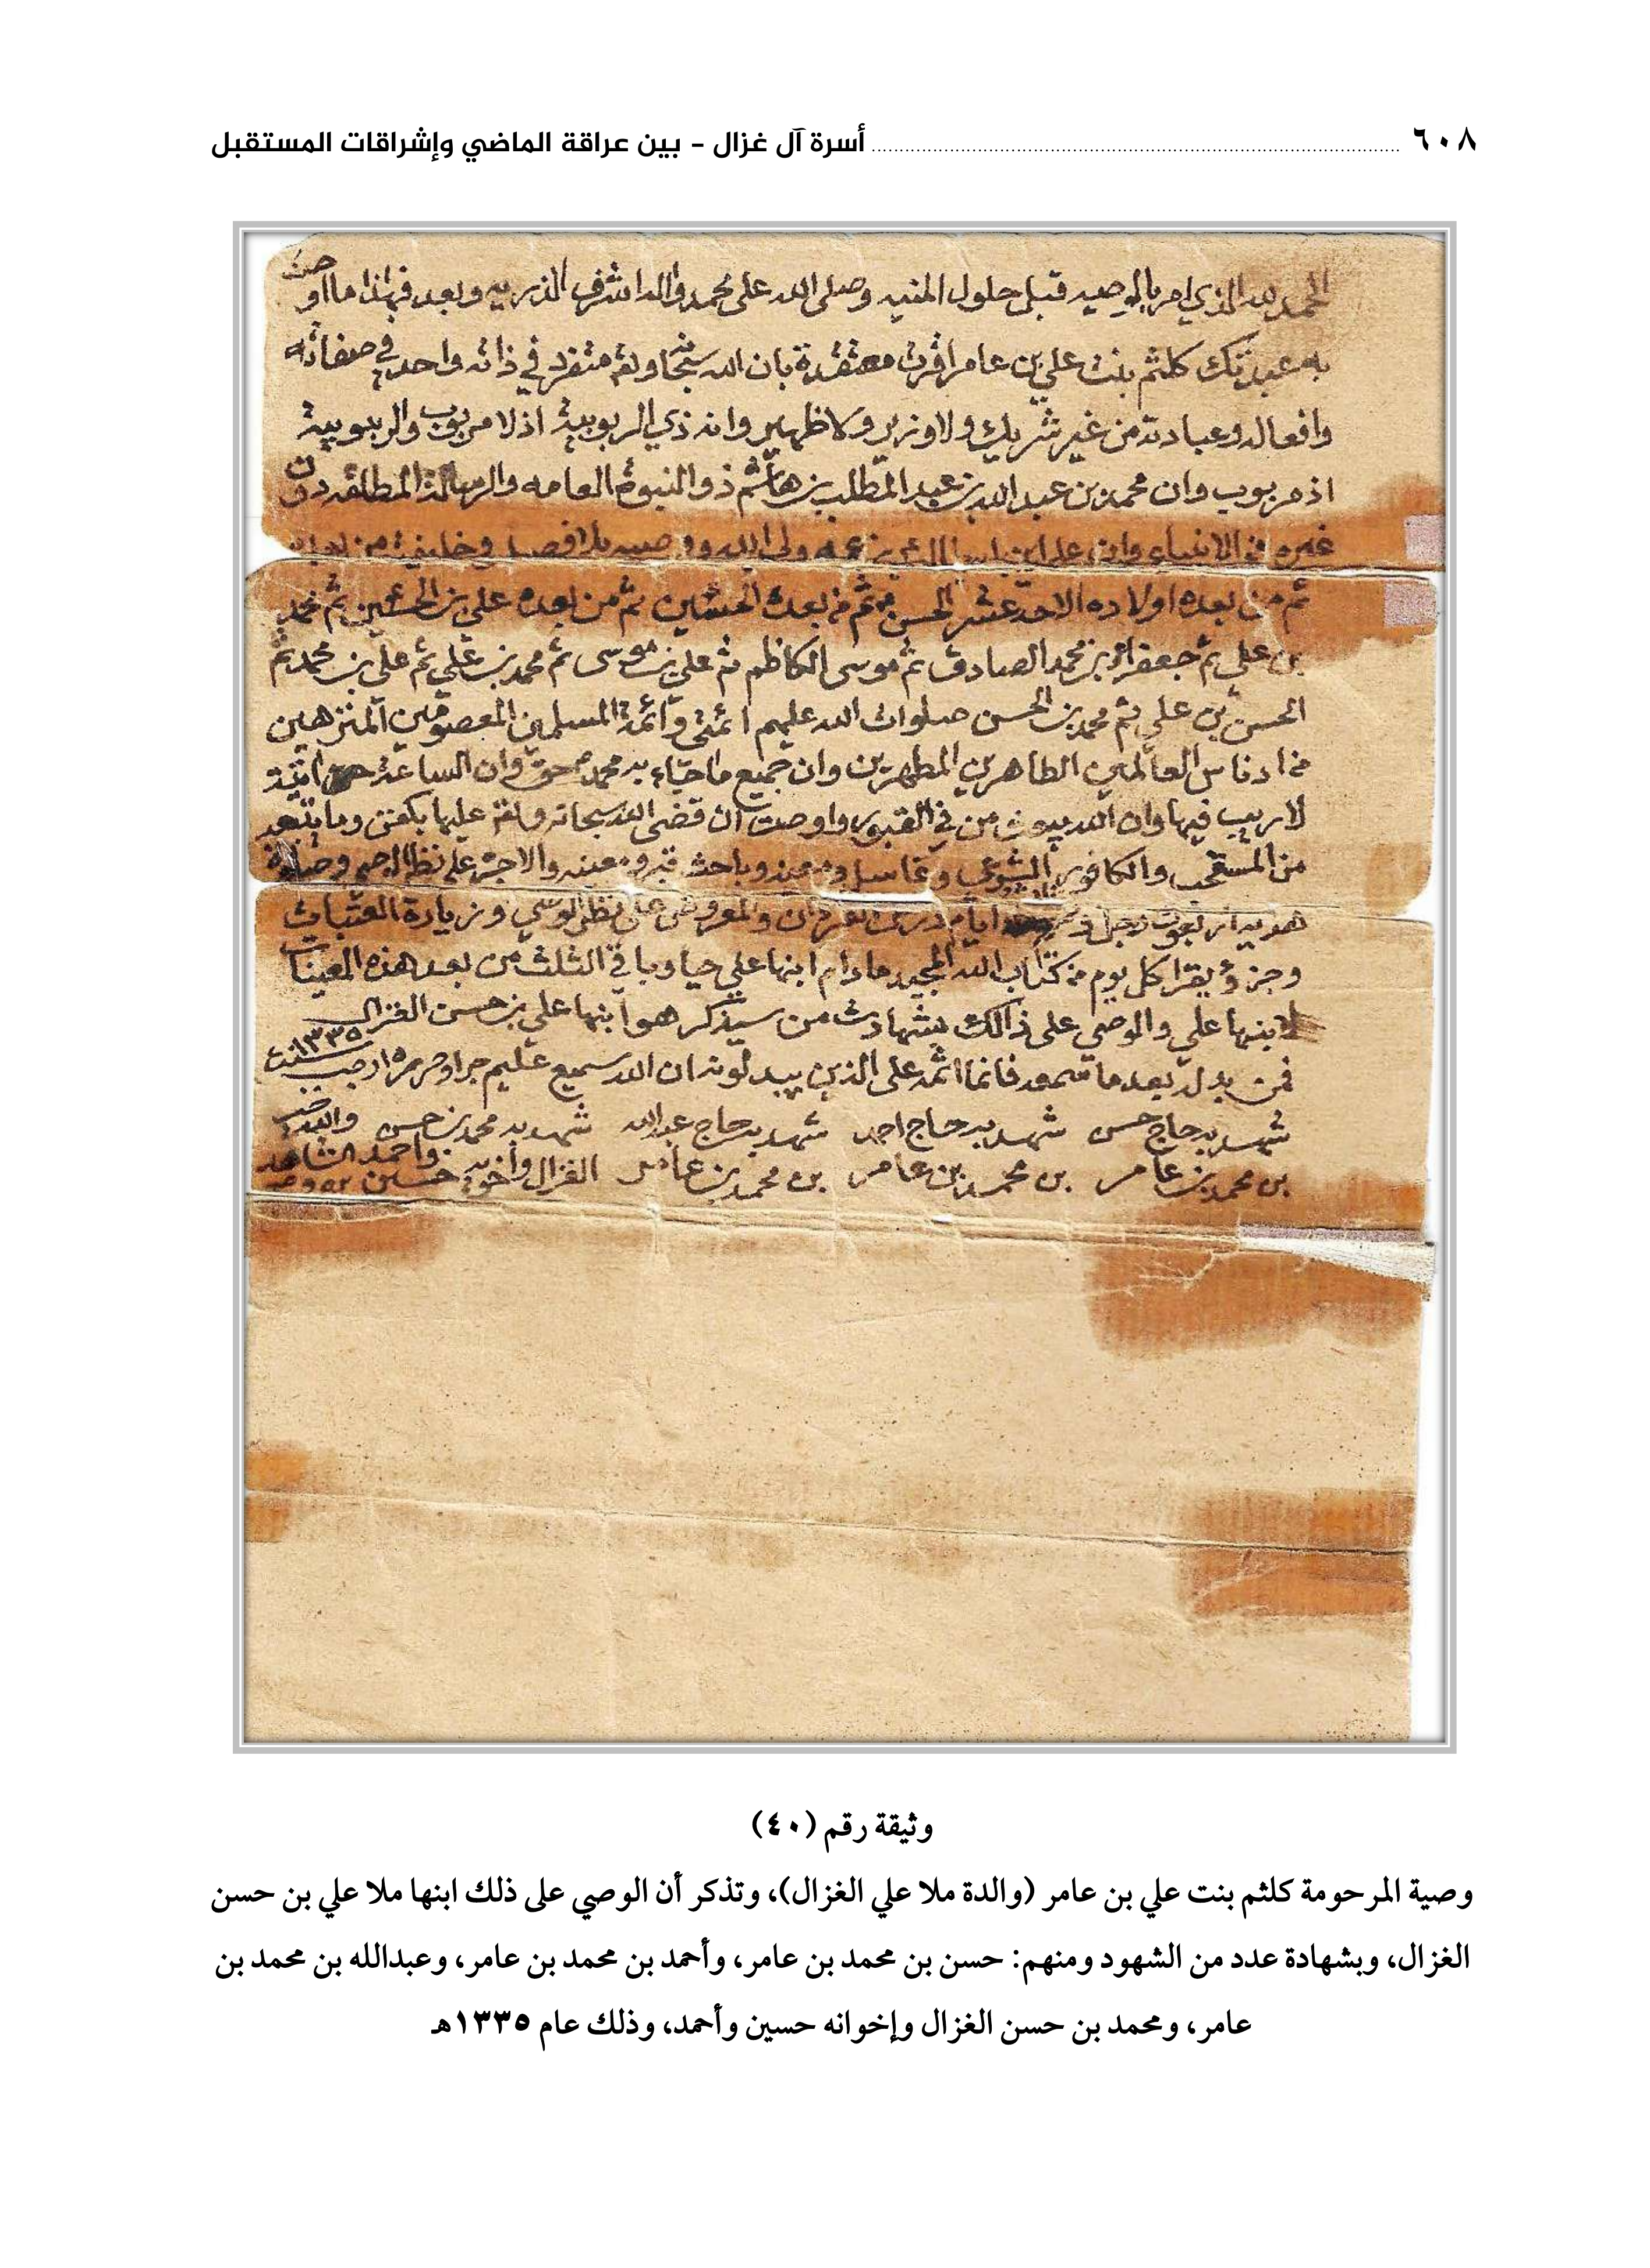 ٦٠٨ أسرة آل غزال - بين عراقة الماضي وإشراقات المستقبل
الحمد لله الذي امر بالوصيه قبل حلول المنيه وصلى الله على محمد واله اشرف الذريه وبعد فهذا ما اوصت
به عبدتك كلثم بنت علي بن عامر اقرت معتقدة بان الله سبحانه وتع متفرد في ذاته واحد في صفاته
وافعاله وعبادته من غير شريك ولا وزير ولا ظهير وانه ذي الربوبية اذ لا مربوب والربوبية
اذ مربوب وان محمد بن عبد الله بن عبد المطلب بن هاشم ذو النبوة العامه والرسالة المطلقه دون
غيره من الانبياء وان علي ابن ابي طالب بن عمه ولي الله ووصيه بلا فصل وخليفته من بعده
ثم من بعده اولاده الاحد عشر الحسن ثم من بعده الحسين ثم من بعده علي بن الحسين ثم محمد
بن علي ثم جعفر بن محمد الصادق ثم موسى الكاظم ثم علي بن موسى ثم محمد بن علي ثم علي بن محمد ثم
الحسن بن علي ثم محمد بن الحسن صلوات الله عليهم ائمتي وائمة المسلمين المعصومين المنزهين
من ادناس العالمين الطاهرين المطهرين وان جميع ما جاء به محمد ص حق وان الساعة اتية
لا ريب فيها وان الله يبعث من في القبور واوصت ان قضى الله سبحانه وتع عليها بكفن وما يتبعه
من المستحب والكافور الشرعي وغاسل ومعينه وباحث قبر ومعينه والاجرة على نظر الوصي وصلاة
هديه اربعون رجل ايام درس القرآن والمعروض على نظر الوصي وزيارة العتبات
وجزؤ يقرا كل يوم من كتاب الله المجيد ما دام ابنها علي حيا وباقي الثلث من بعد هذه المعينات
لابنها علي والوصي على ذالك بشهادت من سيذكر هو ابنها علي بن حسن الغزال
فمن بدله بعد ما سمعه فانما اثمه على الذين يبدلونه ان الله سميع عليم جرا وحرر ١٥ رجب سنت ١٣٣٥
شهد به حاج حسن شهد به حاج احمد شهد به حاج عبد الله شهد به محمد بن حسن
بن محمد بن عامر بن محمد بن عامر بن محمد بن عامر الغزال واخويه حسين واحمد
وثيقة رقم (٤٠)
وصية المرحومة كلثم بنت علي بن عامر (والدة ملا علي الغزال)، وتذكر أن الوصي على ذلك ابنها ملا علي بن حسن
الغزال، وبشهادة عدد من الشهود ومنهم: حسن بن محمد بن عامر، وأحمد بن محمد بن عامر، وعبدالله بن محمد بن
عامر، ومحمد بن حسن الغزال وإخوانه حسين وأحمد، وذلك عام ١٣٣٥هـ